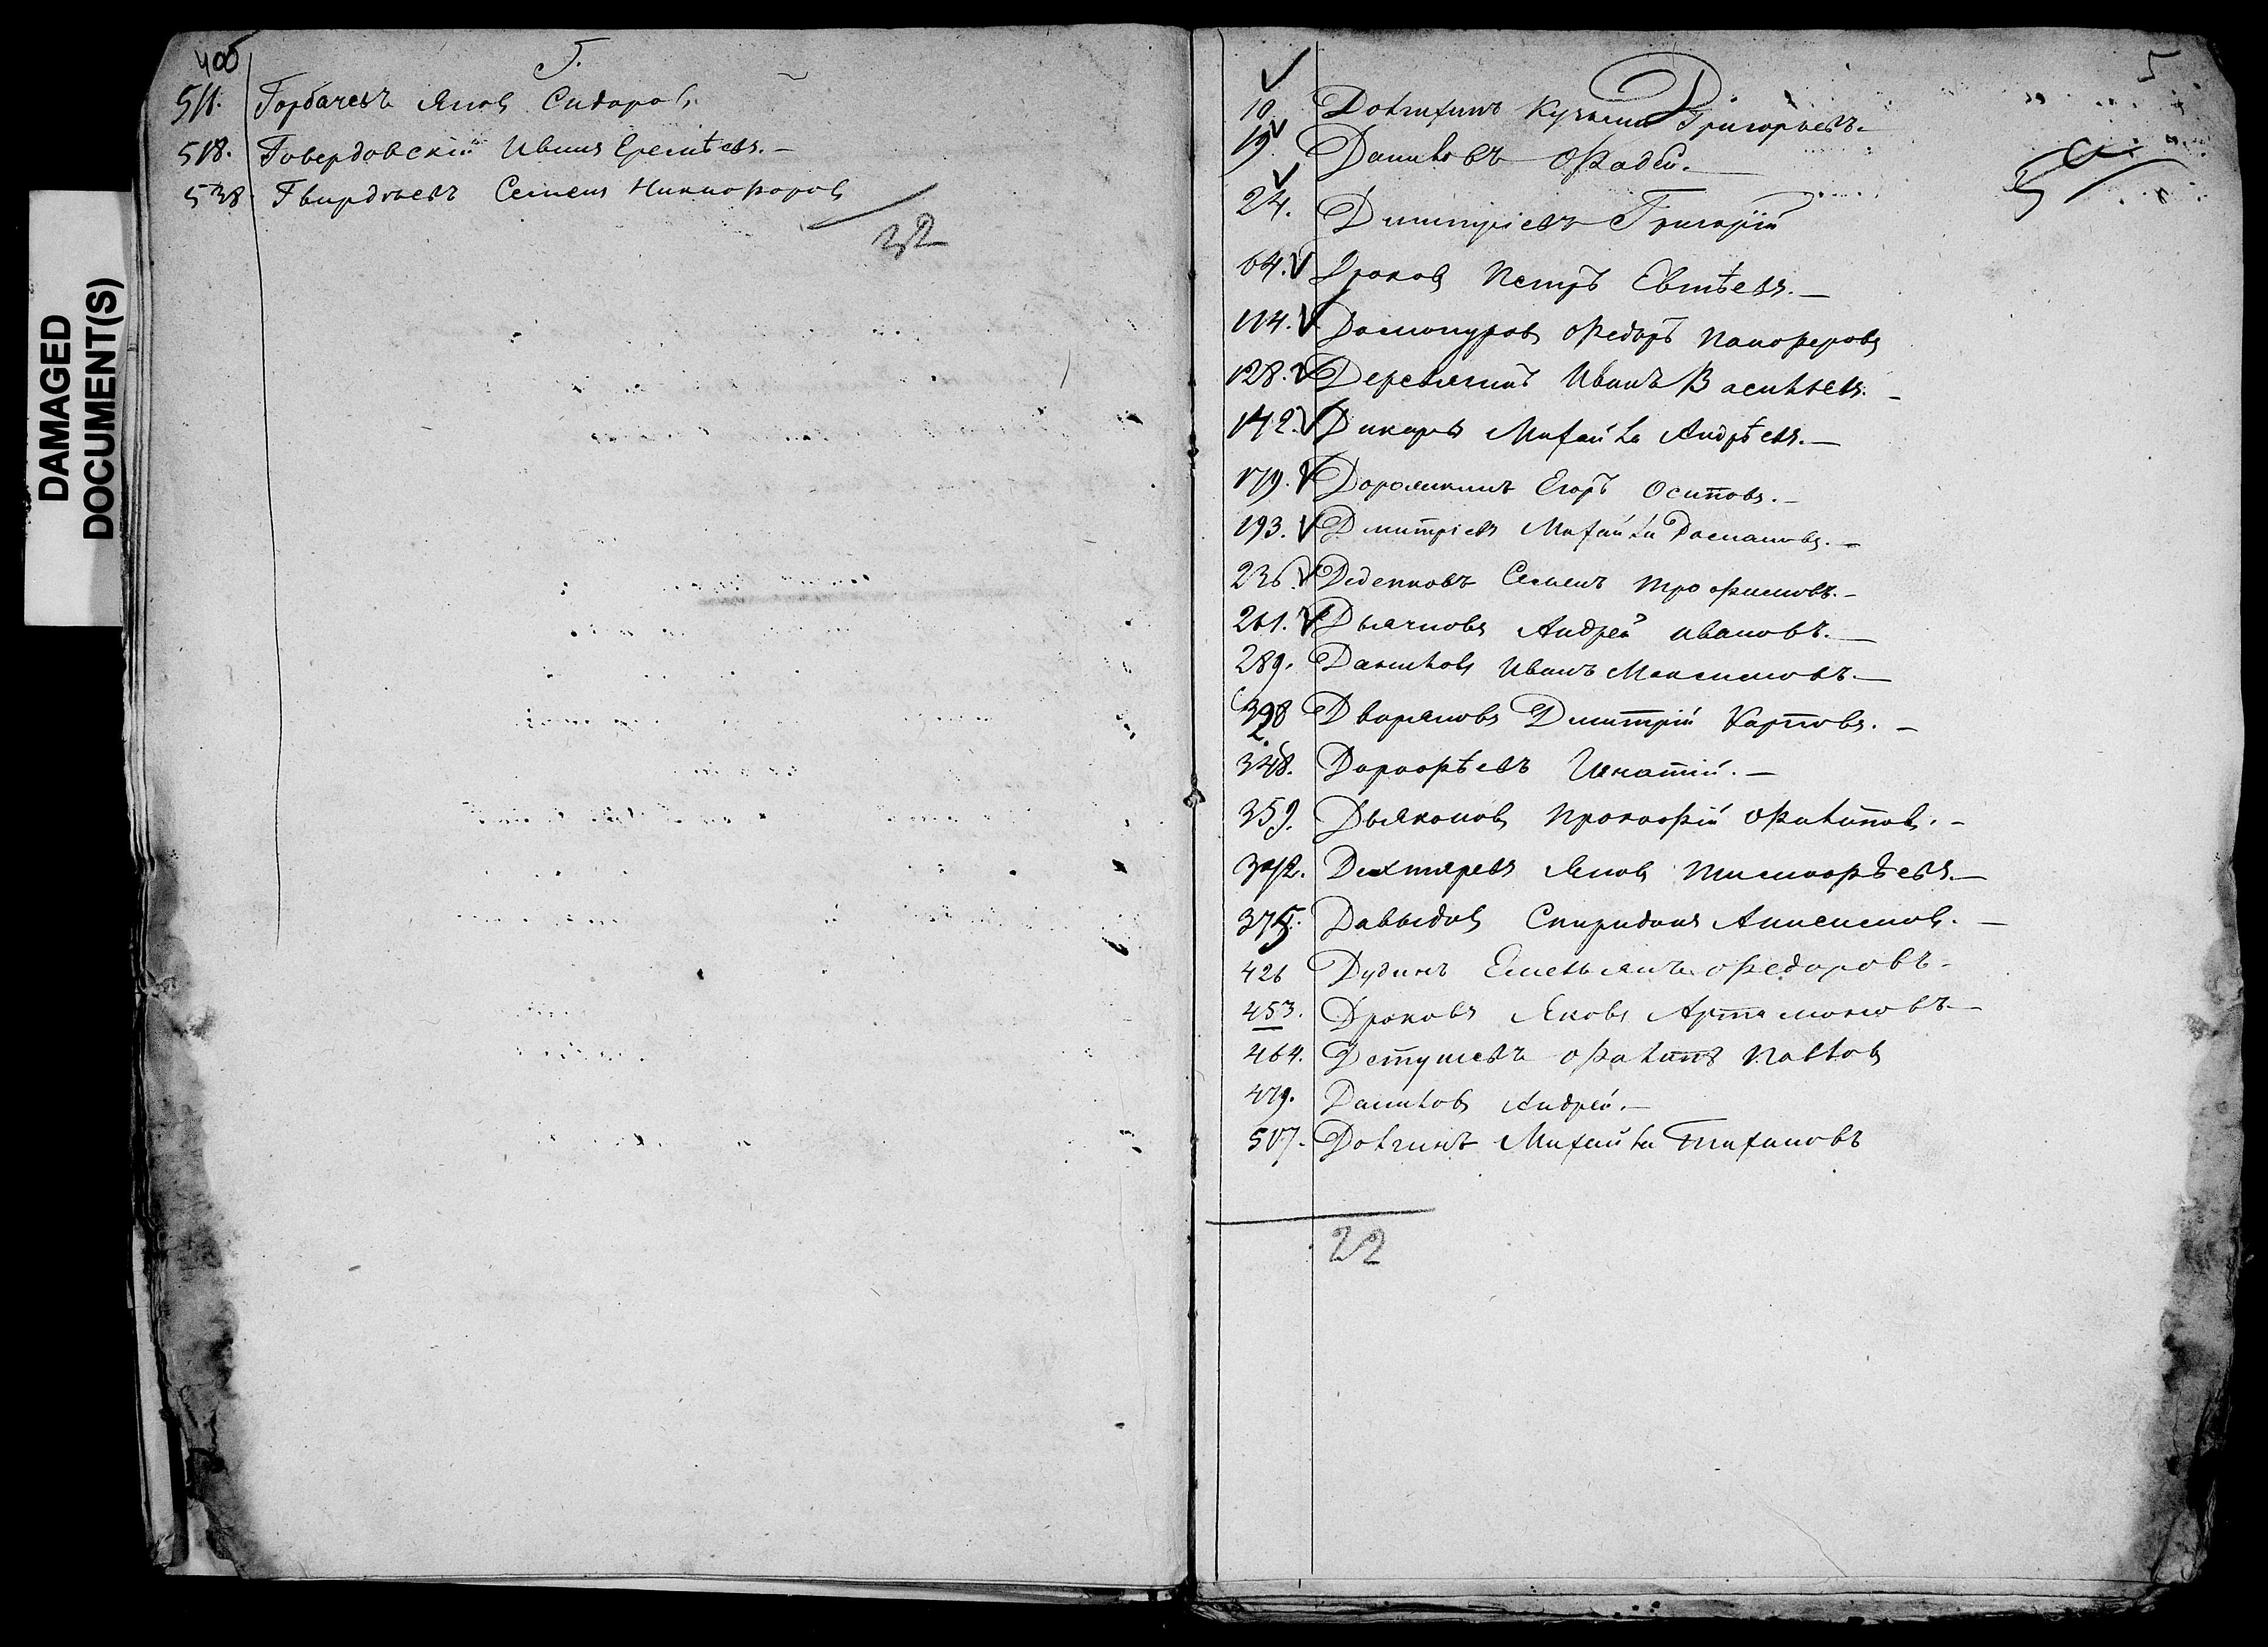 400
Г.
511. Горбачевъ Яковъ Сидоровъ
518. Говердовскій Иванъ Еремѣевъ.
538. Гвирдовъ Семенъ Никифоровъ
32
DAMAGED
DOCUMENT(S)
5
Д
10. Долгихинъ Кузьма Григорьевъ.
19 Даниловъ Фадей.
24. Дмитріевъ Григорій
64. Дроновъ Петръ Евтѣевъ.
114. Федоръ Панферовъ
128. Деревягинъ Иванъ Васильевъ.
142. Дикаревъ Михайла Андрѣевъ.
179. Егоръ Осиповъ.
193. Дмитріевъ Михайла Романовъ.
236. Деденковъ Семенъ Трофимовъ.
261. Дьячковъ Андрей Ивановъ.
289. Даниловъ Иванъ Максимовъ.
328 Дворяновъ Дмитрій Карповъ.
348. Дорофѣевъ Игнатій.
359. Дьяконовъ Прокофій Филиповъ.
372. Дехтяревъ Яковъ Тимофѣевъ.
375. Давыдовъ Спиридонъ Анисимовъ.
426 Дудинъ Емельянъ Федоровъ
453. Дроновъ Яковъ Артамоновъ
464. Филипъ Павловъ
479. Даниловъ Андрей.
517. Долгинъ Михайла Тихановъ
22